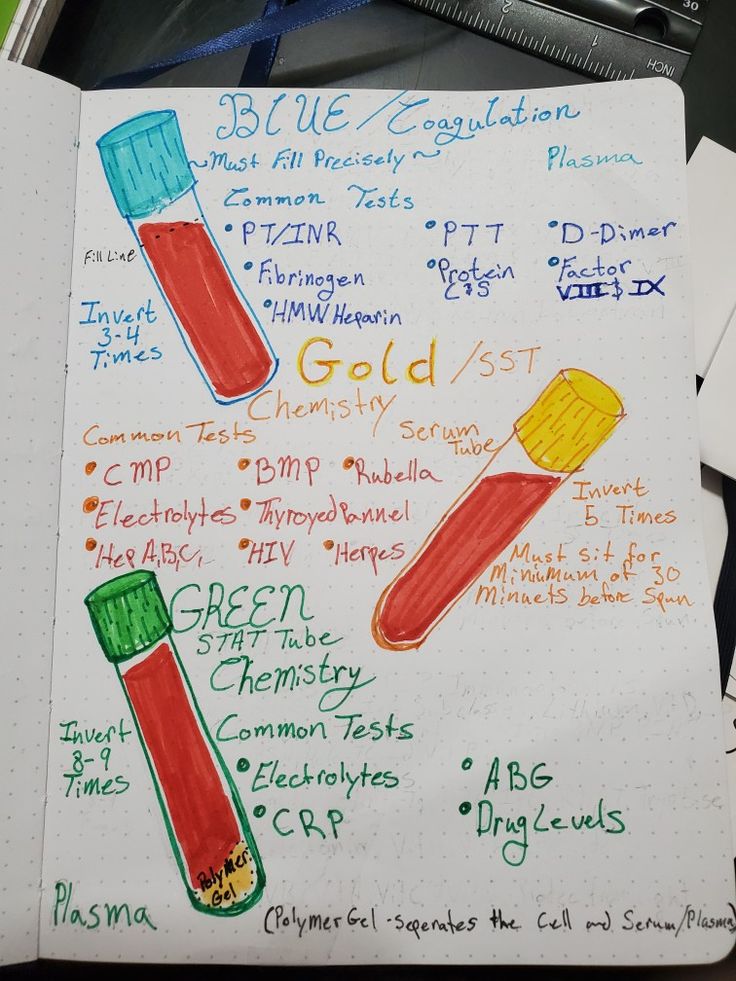 BLUE / Coagulation
~Must Fill Precisely~
Plasma
Common Tests
• PT/INR
• PTT
• D-Dimer
Fill Line
• Fibrinogen
• Protein C & S
• Factor VIII & IX
• HMW Heparin
Invert
3-4
Times
Gold / SST
Chemistry
Serum
Tube
Common Tests
• CMP
• BMP
• Rubella
• Electrolytes
• Thyroyed Pannel
• Hep A,B,C,
• HIV
• Herpes
Invert
5 Times
Must sit for
Miniumum of 30
Minuets before Spun
GREEN
STAT Tube
Chemistry
Invert
8-9
Times
Common Tests
• Electrolytes
• ABG
• CRP
• Drug Levels
Polymer
Gel
Plasma
(Polymer Gel - Seperates the Cell and Serum/Plasma)
30
2
1
INCH